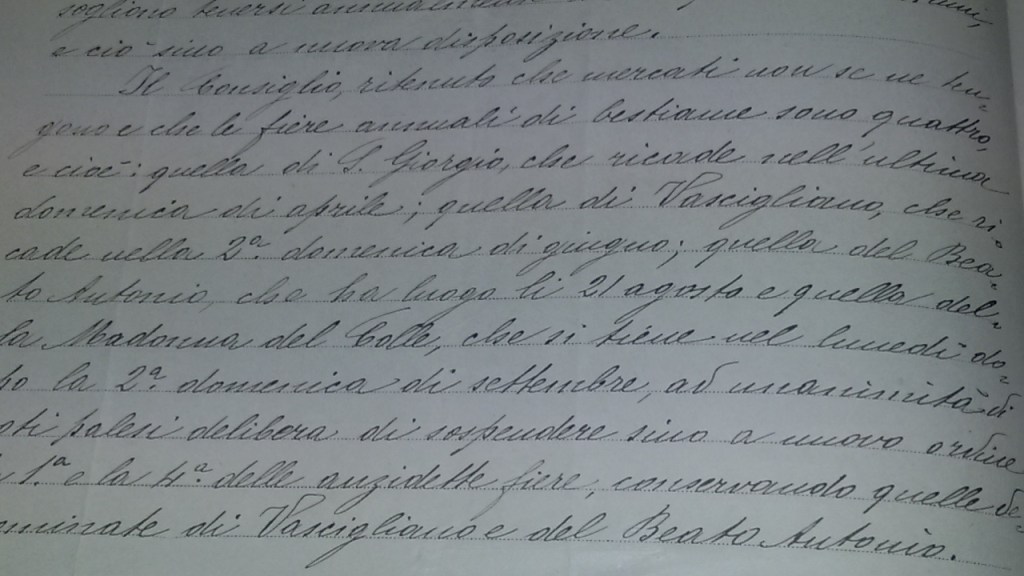 sogliono tenersi annualmente
e ciò sino a nuova disposizione.
Il Consiglio, ritenuto che mercati non se ne ten-
gono e che le fiere annuali di bestiame sono quattro,
e cioè: quella di S. Giorgio, che ricade nell'ultima
domenica di aprile; quella di Vascigliano, che ri-
cade nella 2ª domenica di giugno; quella del Bea-
to Antonio, che ha luogo li 21 agosto e quella del-
la Madonna del Colle, che si tiene nel lunedì do-
po la 2ª domenica di settembre, ad unanimità di
oti palesi delibera di sospendere sino a nuovo ordine
1ª e la 4ª delle anzidette fiere, conservando quelle de-
minate di Vascigliano e del Beato Antonio.